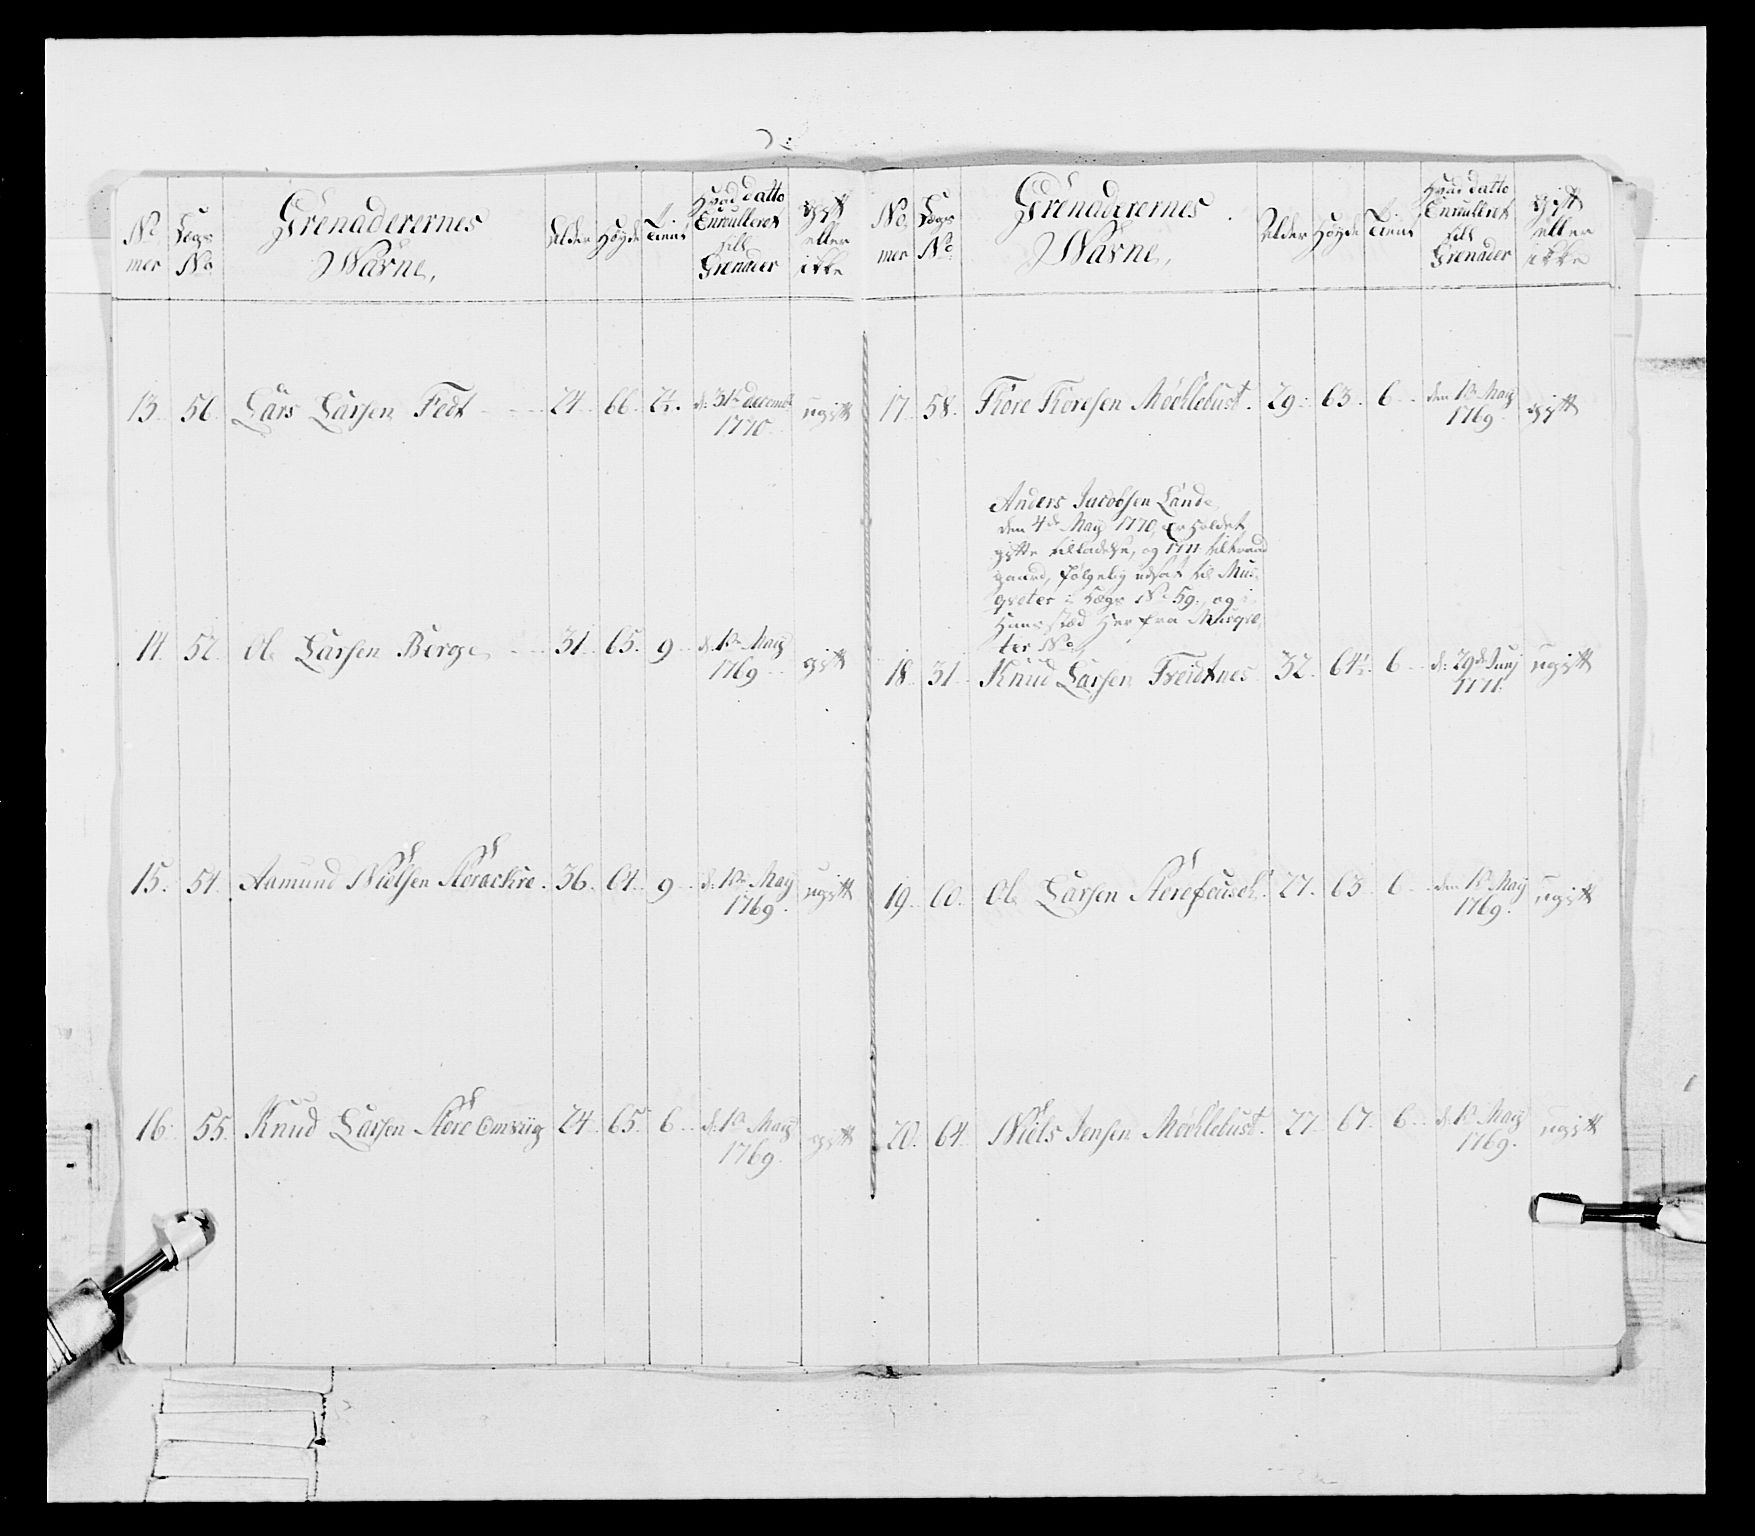 No mer
Lægs No
Grenaderernes Nafne,
Alder
Høyde
Tienst
Hvad datto Enrulleret till Grenader
gift eller ikke
13. 56. Lars Larsen Fedt 24. 66. 2½. d: 31te decemb: 1770 ugift
14. 52. Ole Larsen Berge 31. 65. 9. d: 1te May 1769 gift
15. 54. Aamund Nielsen Storackre. 36. 64. 9. d: 1te May 1769. ugift
16. 55. Knud Larsen Store 24. 65. 6. d: 1te May 1769. gift
No mer
Lægs No
Grenaderernes Nafne,
Alder
Høyde
Tienst
Hvad datto Enrulleret till Grenader
gift eller ikke
17. 58. Thore Thoresen Mochlebust. 29. 63. 6. den 1te May 1769. gift
Anders Jacobsen Lande,
den 4de May 1770, Erholdet
gifte tilladelse, og 1771
gaard, følgelig udsat til Mus-
qveter i Lægs No 59., og i
Hans stæd Her fra Musqve-
ter No
18. 31. Knud Larsen 32. 64½. 6. d: 29de Junj 1771. ugift
19. 60. Ole Larsen 27. 63. 6. den 1te May 1769. ugift
20. 64. Niels Jensen Mochlebust. 27. 67. 6. d: 1te May 1769. ugift